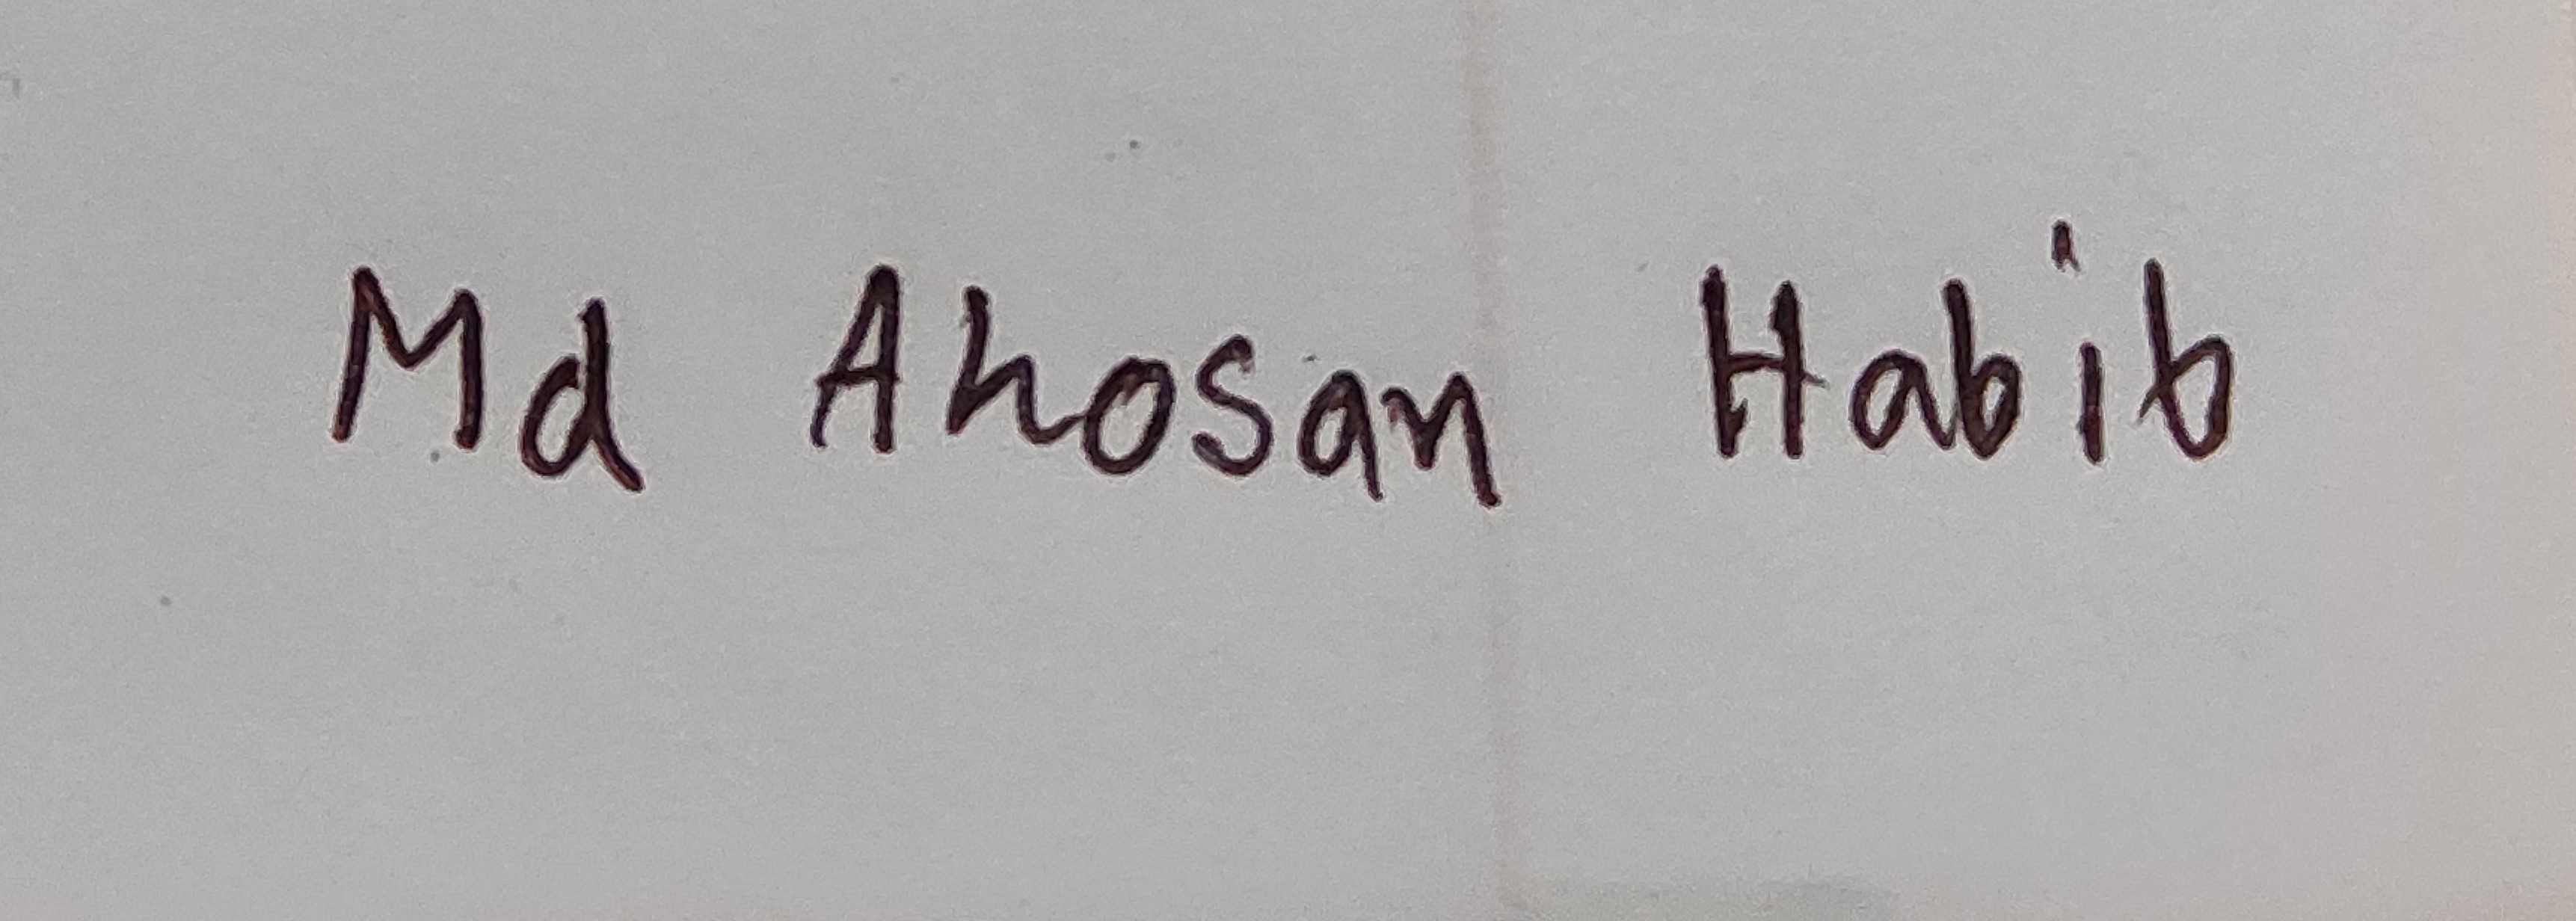 Md Ahosan Habib